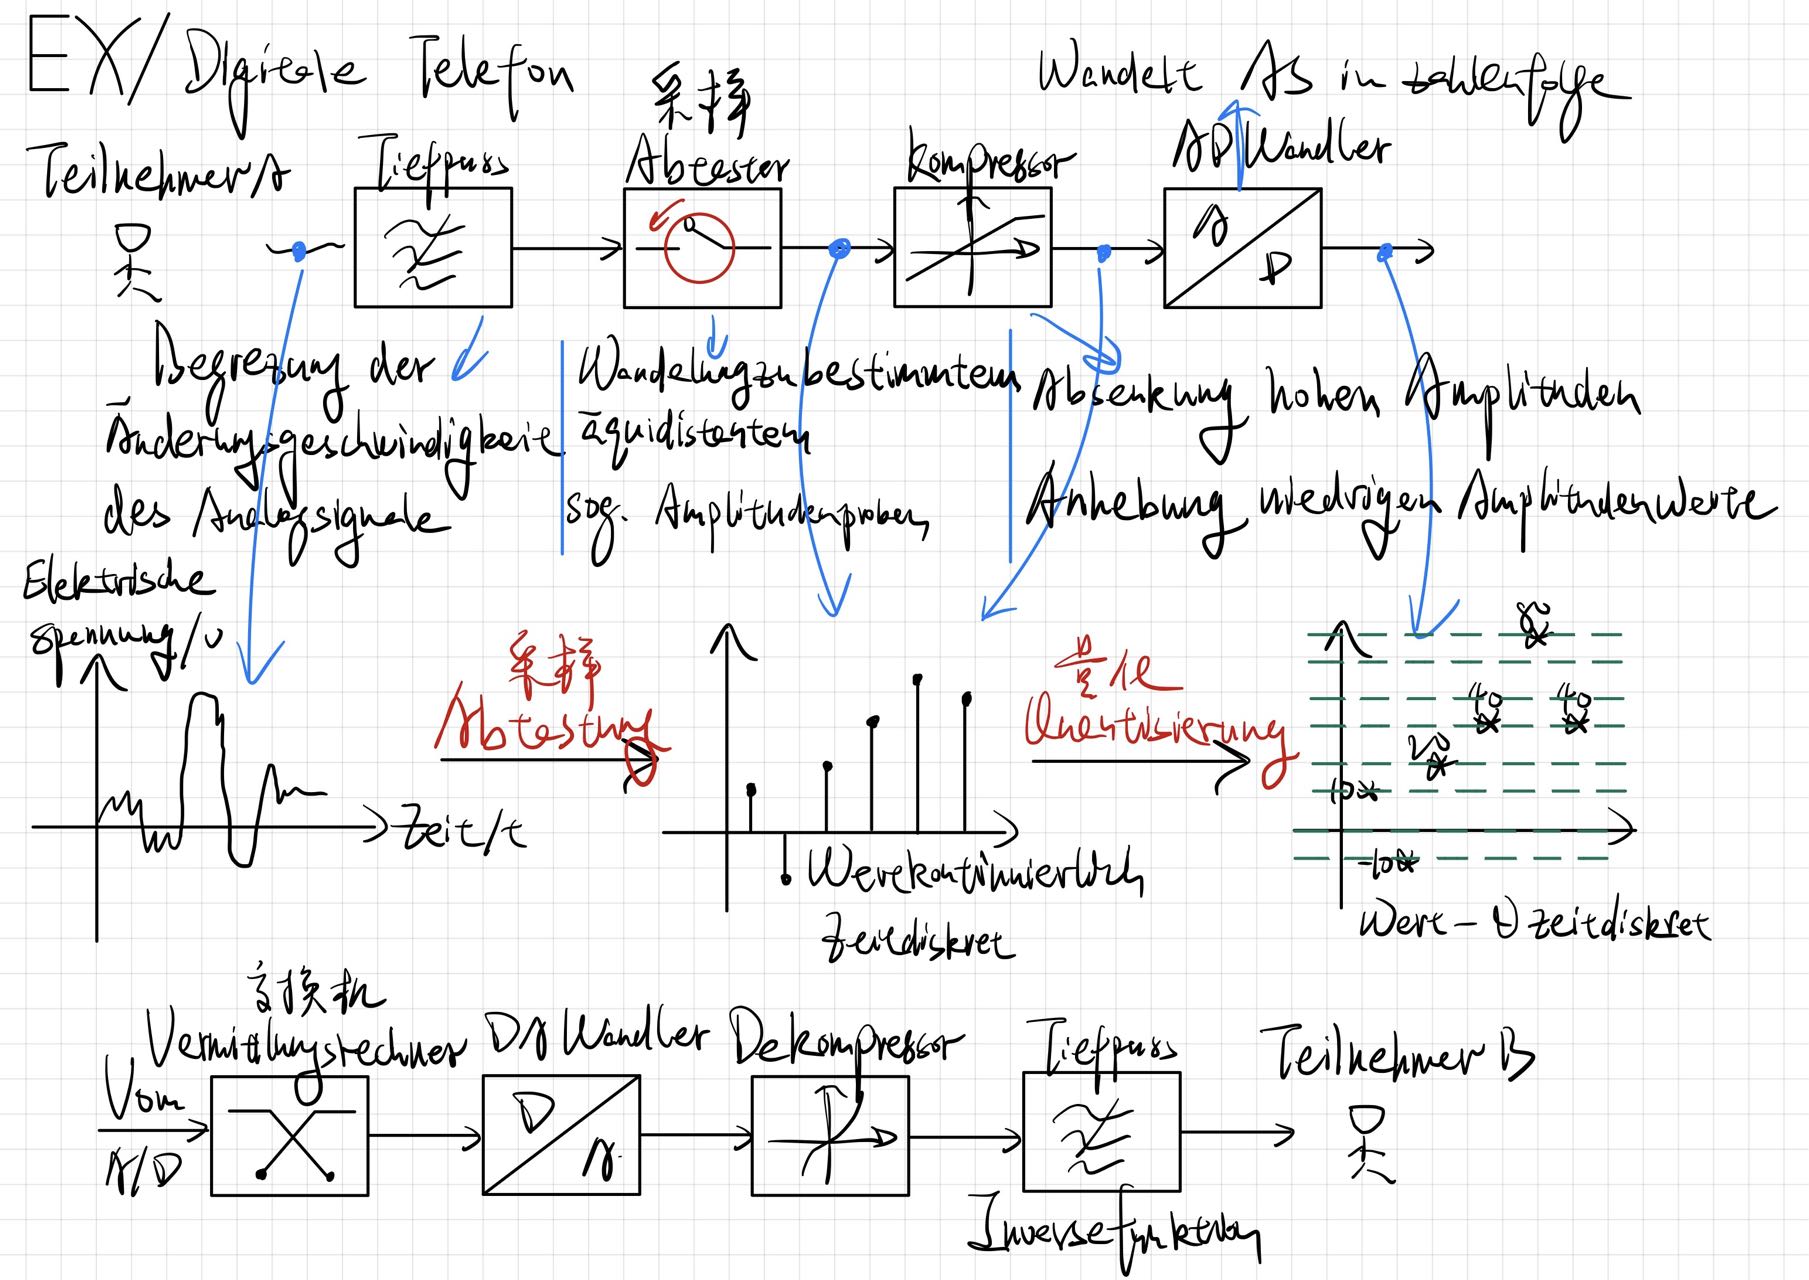 EX/ Digitale Telefon
采样
Wandelt AS in zahlenfolge
Teilnehmer A
Tiefpass
Abtaster
Kompressor
AD Wandler
A
D
Begrezung der
Änderungsgeschwindigkeit
des Analogsignale
Wandelung zu bestimmten
äquidistanten
sog. Amplitudenproben
Absenkung hohen Amplituden
Anhebung niedrigen Amplitudenwerte
Elektrische
Spannung/U
Zeit/t
采样
Abtastung
量化
Quantisierung
80
40 40
20
10
-10
Zeitdiskret
Wert- & zeitdiskret
交换机
Vermittlungsrechner
DA Wandler
Dekompressor
Tiefpass
Teilnehmer B
Vom
A/D
D
A
Inversefunktion